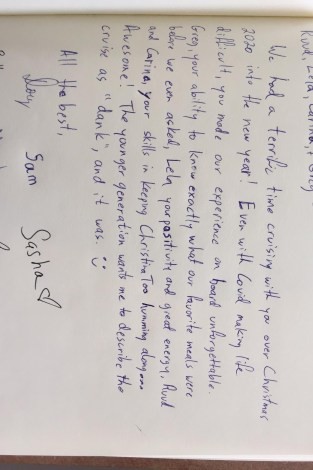 Ruud, Lela, Carina, & Greg
We had a terrific time cruising with you over Christmas
2020 into the new year! Even with Covid making life
difficult, you made our experience on board unforgettable.
Greg, your ability to know exactly what our favorite meals were
before we even asked, Lela your positivity and great energy, Ruud
and Carina, your skills in keeping Christina Too humming along...
Awesome! The younger generation wants me to describe the
cruise as "dank", and it was. :)
All the best,
Sam Sasha ♡